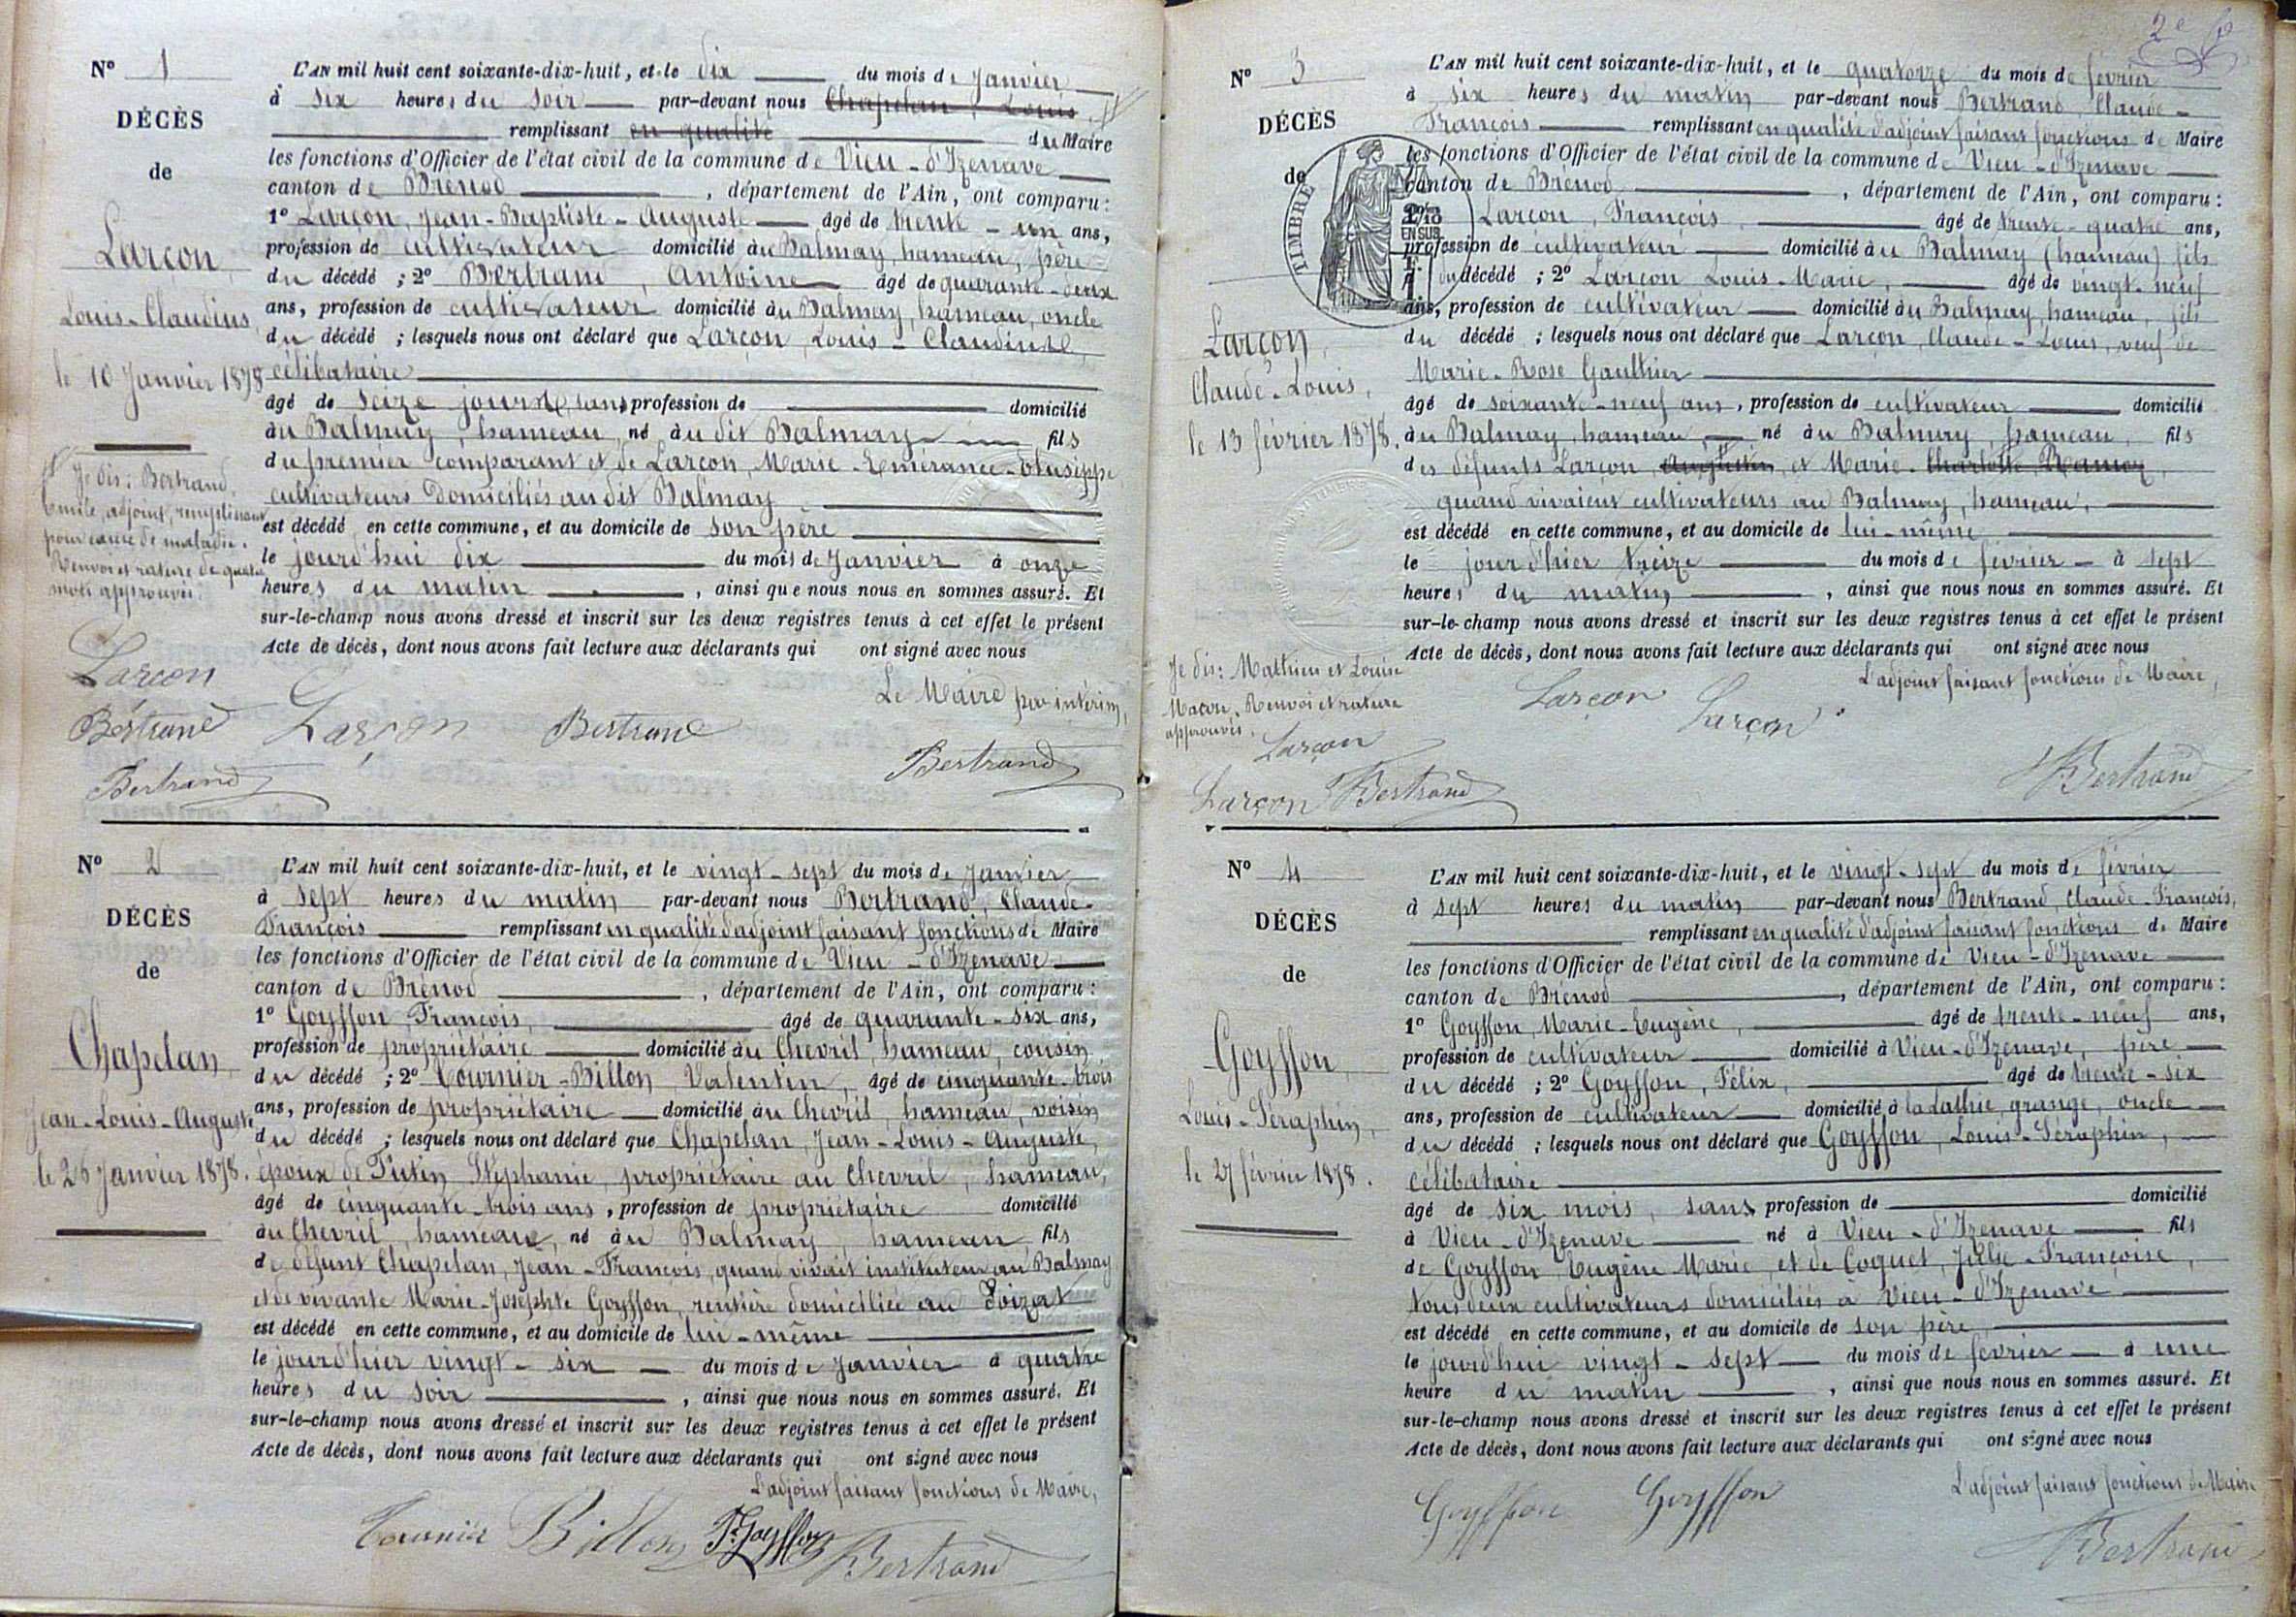 N° 1
DÉCÈS
de
Larçon,
Louis-Claudius,
le 10 Janvier 1878
Je dis: Bertrand,
Emile, adjoint, remplissant
pour cause de maladie.
Renvoi et rature de quatre
mots approuvés.
Larçon
Bertrand
Bertrand
L'AN mil huit cent soixante-dix-huit, et le dix du mois de Janvier
à six heures du soir par-devant nous Chapelan, Louis
remplissant en qualité du Maire
les fonctions d'Officier de l'état civil de la commune de Vieu-d'Izenave
canton de Brénod, département de l'Ain, ont comparu:
1° Larçon, Jean-Baptiste-Auguste âgé de trente-un ans,
profession de cultivateur domicilié au Balmay, hameau, père
du décédé ; 2° Bertrand, Antoine âgé de quarante-deux
ans, profession de cultivateur domicilié au Balmay, hameau, oncle
du décédé ; lesquels nous ont déclaré que Larçon, Louis-Claudius,
célibataire
âgé de seize jours, sans profession de domicilié
au Balmay, hameau, né au dit Balmay fils
du premier comparant et de Larçon, Marie-Emérance
cultivateurs domiciliés au dit Balmay
est décédé en cette commune, et au domicile de son père
le jourd'hui dix du mois de Janvier à onze
heures du matin, ainsi que nous nous en sommes assuré. Et
sur-le-champ nous avons dressé et inscrit sur les deux registres tenus à cet effet le présent
Acte de décès, dont nous avons fait lecture aux déclarants qui ont signé avec nous
Le Maire par intérim,
Larçon Bertrand
Bertrand
N° 2
DÉCÈS
de
Chapelan,
Jean-Louis-Auguste
le 26 Janvier 1878.
L'AN mil huit cent soixante-dix-huit, et le vingt-sept du mois de Janvier
à sept heures du matin par-devant nous Bertrand, Claude-
François remplissant en qualité d'adjoint faisant fonctions de Maire
les fonctions d'Officier de l'état civil de la commune de Vieu-d'Izenave
canton de Brénod, département de l'Ain, ont comparu:
1° Goyffon, François, âgé de quarante-six ans,
profession de propriétaire domicilié au Chevril, hameau, cousin
du décédé ; 2° Tournier-Billon, Valentin, âgé de cinquante-trois
ans, profession de propriétaire domicilié au Chevril, hameau, voisin
du décédé ; lesquels nous ont déclaré que Chapelan, Jean-Louis-Auguste,
époux de Tutin Stéphanie, propriétaire au Chevril, hameau,
âgé de cinquante-trois ans, profession de propriétaire domicilié
au Chevril, hameau, né au Balmay, hameau fils
de défunt Chapelan, Jean-François, quand vivait instituteur au Balmay
et de vivante Marie-Josephte Goyffon, rentière domiciliée au Poizat
est décédé en cette commune, et au domicile de lui-même
le jourd'hier vingt-six du mois de Janvier à quatre
heures du soir, ainsi que nous nous en sommes assuré. Et
sur-le-champ nous avons dressé et inscrit sur les deux registres tenus à cet effet le présent
Acte de décès, dont nous avons fait lecture aux déclarants qui ont signé avec nous
L'adjoint faisant fonctions de Maire,
Tournier Billon F. Goyffon Bertrand
2e
N° 3
DÉCÈS
de
TIMBRE
2/10
EN SUS
Larçon,
Claude-Louis,
le 13 février 1878.
Je dis: Mathieu et Louise
Macon. Renvoi et rature
approuvés.
Larçon
Larçon Bertrand
L'AN mil huit cent soixante-dix-huit, et le quatorze du mois de février
à six heures du matin par-devant nous Bertrand, Claude-
François remplissant en qualité d'adjoint faisant fonctions de Maire
les fonctions d'Officier de l'état civil de la commune de Vieu-d'Izenave
canton de Brénod, département de l'Ain, ont comparu:
Larçon, François, âgé de trente-quatre ans,
profession de cultivateur domicilié au Balmay (hameau) fils
du décédé ; 2° Larçon Louis-Marie, âgé de vingt-neuf
ans, profession de cultivateur domicilié au Balmay, hameau, fils
du décédé ; lesquels nous ont déclaré que Larçon, Claude-Louis, veuf de
Marie-Rose Gaulthier
âgé de soixante-neuf ans, profession de cultivateur domicilié
au Balmay, hameau, né au Balmay, hameau, fils
des défunts Larçon, Augustin, et Marie-Charlotte
quand vivaient cultivateurs au Balmay, hameau,
est décédé en cette commune, et au domicile de lui-même
le jourd'hier treize du mois de février à sept
heures du matin, ainsi que nous nous en sommes assuré. Et
sur-le-champ nous avons dressé et inscrit sur les deux registres tenus à cet effet le présent
Acte de décès, dont nous avons fait lecture aux déclarants qui ont signé avec nous
L'adjoint faisant fonctions de Maire,
Larçon Larçon
Bertrand
N° 4
DÉCÈS
de
Goyffon,
Louis-Séraphin,
le 27 février 1878.
L'AN mil huit cent soixante-dix-huit, et le vingt-sept du mois de février
à sept heures du matin par-devant nous Bertrand, Claude-François,
remplissant en qualité d'adjoint faisant fonctions de Maire
les fonctions d'Officier de l'état civil de la commune de Vieu-d'Izenave
canton de Brénod, département de l'Ain, ont comparu:
1° Goyffon, Marie-Eugène, âgé de trente-neuf ans,
profession de cultivateur domicilié à Vieu-d'Izenave, père
du décédé ; 2° Goyffon, Félix, âgé de trente-six
ans, profession de cultivateur domicilié à la Lathie, grange, oncle
du décédé ; lesquels nous ont déclaré que Goyffon, Louis-Séraphin,
célibataire
âgé de six mois, sans profession de domicilié
à Vieu-d'Izenave né à Vieu-d'Izenave fils
de Goyffon Eugène Marie, et de Coquet, Julie-Françoise,
tous deux cultivateurs domiciliés à Vieu-d'Izenave
est décédé en cette commune, et au domicile de son père,
le jourd'hui vingt-sept du mois de février à une
heure du matin, ainsi que nous nous en sommes assuré. Et
sur-le-champ nous avons dressé et inscrit sur les deux registres tenus à cet effet le présent
Acte de décès, dont nous avons fait lecture aux déclarants qui ont signé avec nous
L'adjoint faisant fonctions de Maire
Goyffon Goyffon
Bertrand